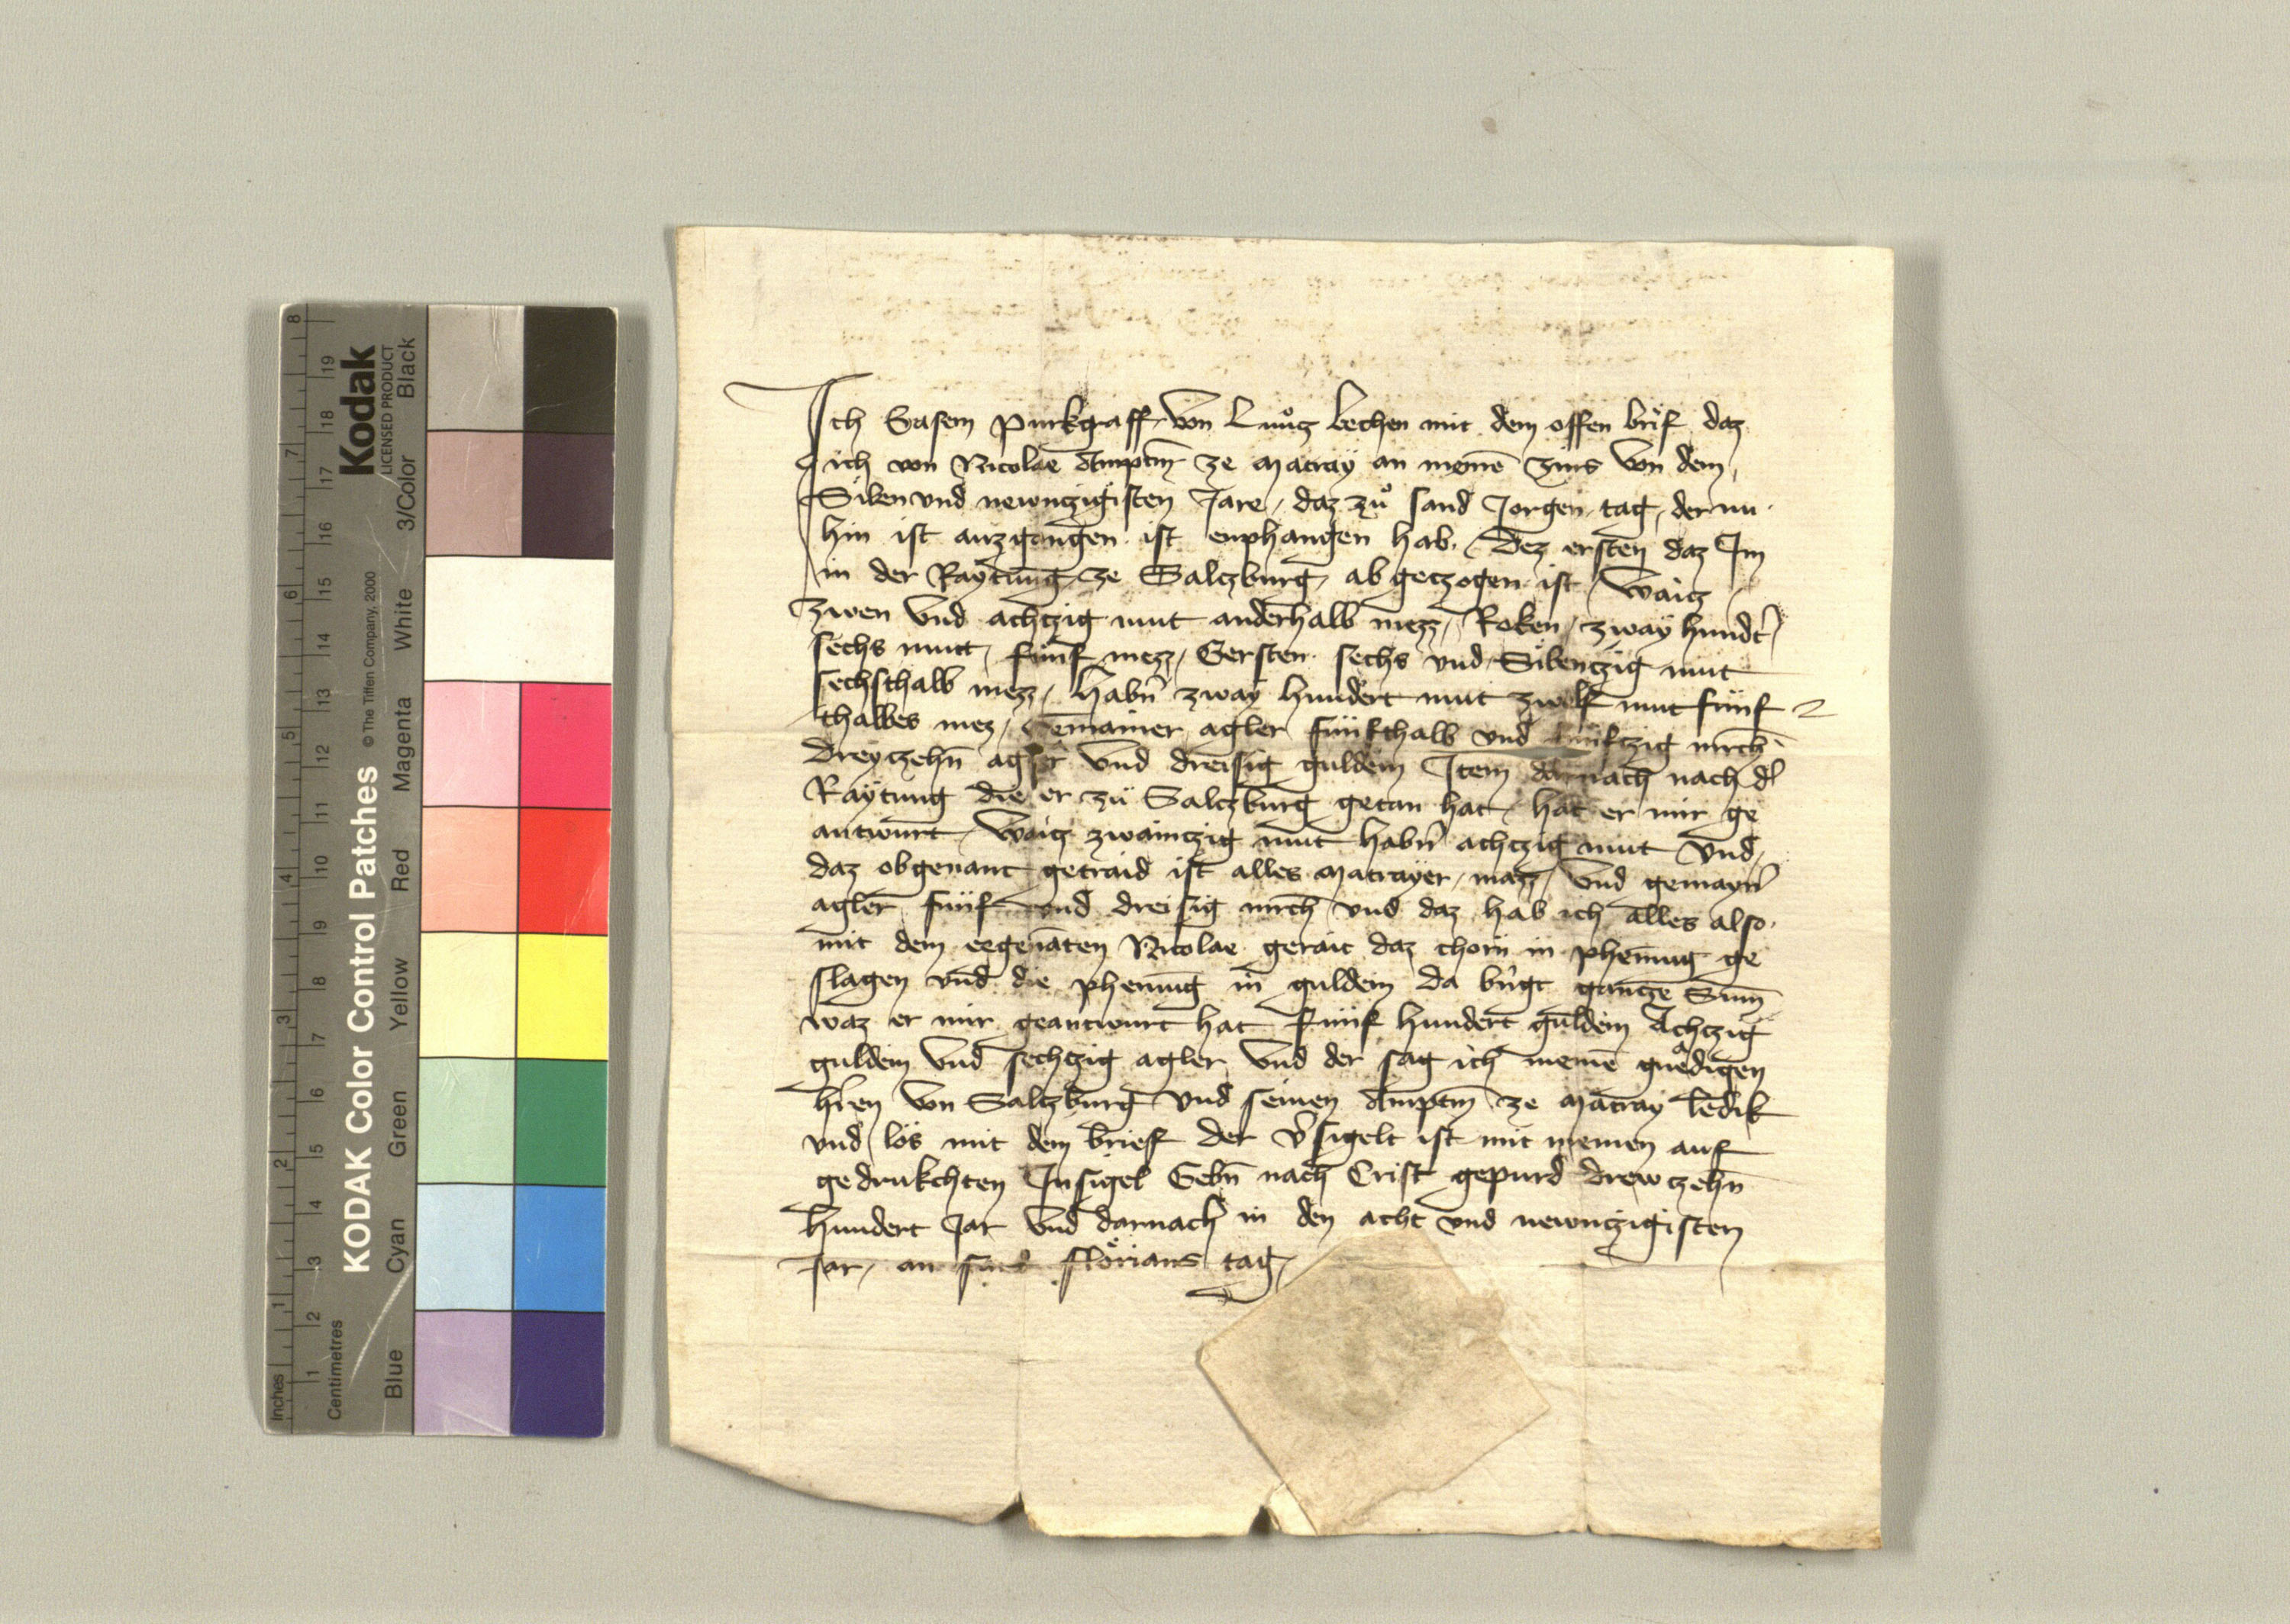 KODAK Color Control Patches © The Tiffen Company, 2000
Kodak
LICENSED PRODUCT
Inches
Centimetres
Blue Cyan Green Yellow Red Magenta White 3/Color Black
Ich Sasem purkgraff von Lu̇ncz vechen mit dem offen brif daz
ich von Nicolae Amptm̄ ze Matray an meinē zins von dem
Siben vnd newnczigisten Jare, daz zů sand Jorgen tag, der nu
hin ist auzgangen ist enphangen hab. Dez ersten daz Im
in der Raytung ze Salczburg, ab geczogen ist Waicz
zwen vnd achczig mut anderhalb mezz, Roken, zway hundt̄
sechs mutt, fünf mezz, Gersten sechs vnd Sibenczig mut
sechsthalb mezz, Habn̄ zway hundert mut zwelf mut fünf
thalbes mez, Gemainer agler fünfthalb vnd fünfczig mrch̄
dreyczehn̄ agler vnd dreisig guldein Item darnach nach d̄
Raytung die er zu Salczburg getan hat, hat er mir ge
antwurt, Waicz zwainczig mut habn̄ achczig mut vnd,
daz obgenant getraid ist alles Matrayer, mazz, vnd gemayn̄
agler fünf vnd dreisig mrch̄ vnd daz hab ich alles also
mit dem egenāten Nicolae gerait daz chorn in phenung ge
slagen vnd die phenūg in guldein da br̄gt gancze Sum̄
waz er mir geantwurt hat fünf hundert guldein Achczig
guldein vnd sechczig agler vnd der sag ich meinē gnedigen
hr̄en von Salczburg vnd seinen Amptm̄ ze Matray ledik
vnd los mit dem brief der v̄sigelt ist mit meinen auf
gedrukchten Insigel Gebn̄ nach Crist gepurd drewczehn̄
hundert Jar vnd darnach in den acht vnd newnczigisten
Jar, an sand flörians tag,